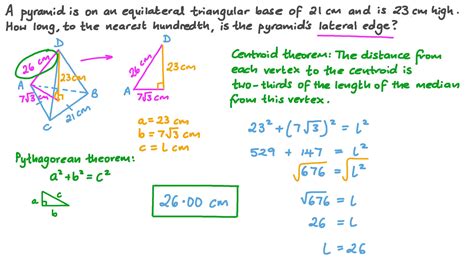 A pyramid is on an equilateral triangular base of 21 cm and is 23 cm high.
How long, to the nearest hundredth, is the pyramid's lateral edge?
D
26 cm
23cm
A
7√3 cm
B
C
21 cm
D
26 cm
23 cm
A
7√3 cm
a = 23 cm
b = 7√3 cm
c = L cm
Pythagorean theorem:
a² + b² = c²
a
c
b
26.00 cm
Centroid theorem: The distance from
each vertex to the centroid is
two-thirds of the length of the median
from this vertex.
23² + (7√3)² = L²
529 + 147 = L²
√676 = √L²
√676 = L
26 = L
L = 26